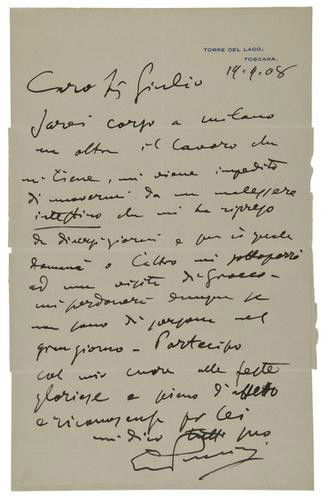 TORRE DEL LAGO,
TOSCANA.
Caro Sig Giulio
Sarei corso a milano
ma oltre il lavoro che
mi tiene, mi viene impedito
di muovermi da un malessere
intestino che mi ha ripreso
da diecigiorni e per il quale
domani o l'altro mi sottoporrò
ad una visita di Grocco -
mi perdonerà dunque se
non sono di persona nel
gran giorno - Partecipo
col mio cuore alle feste
gloriose e pieno di affetto
e riconoscenza per lei
mi dico tutto suo